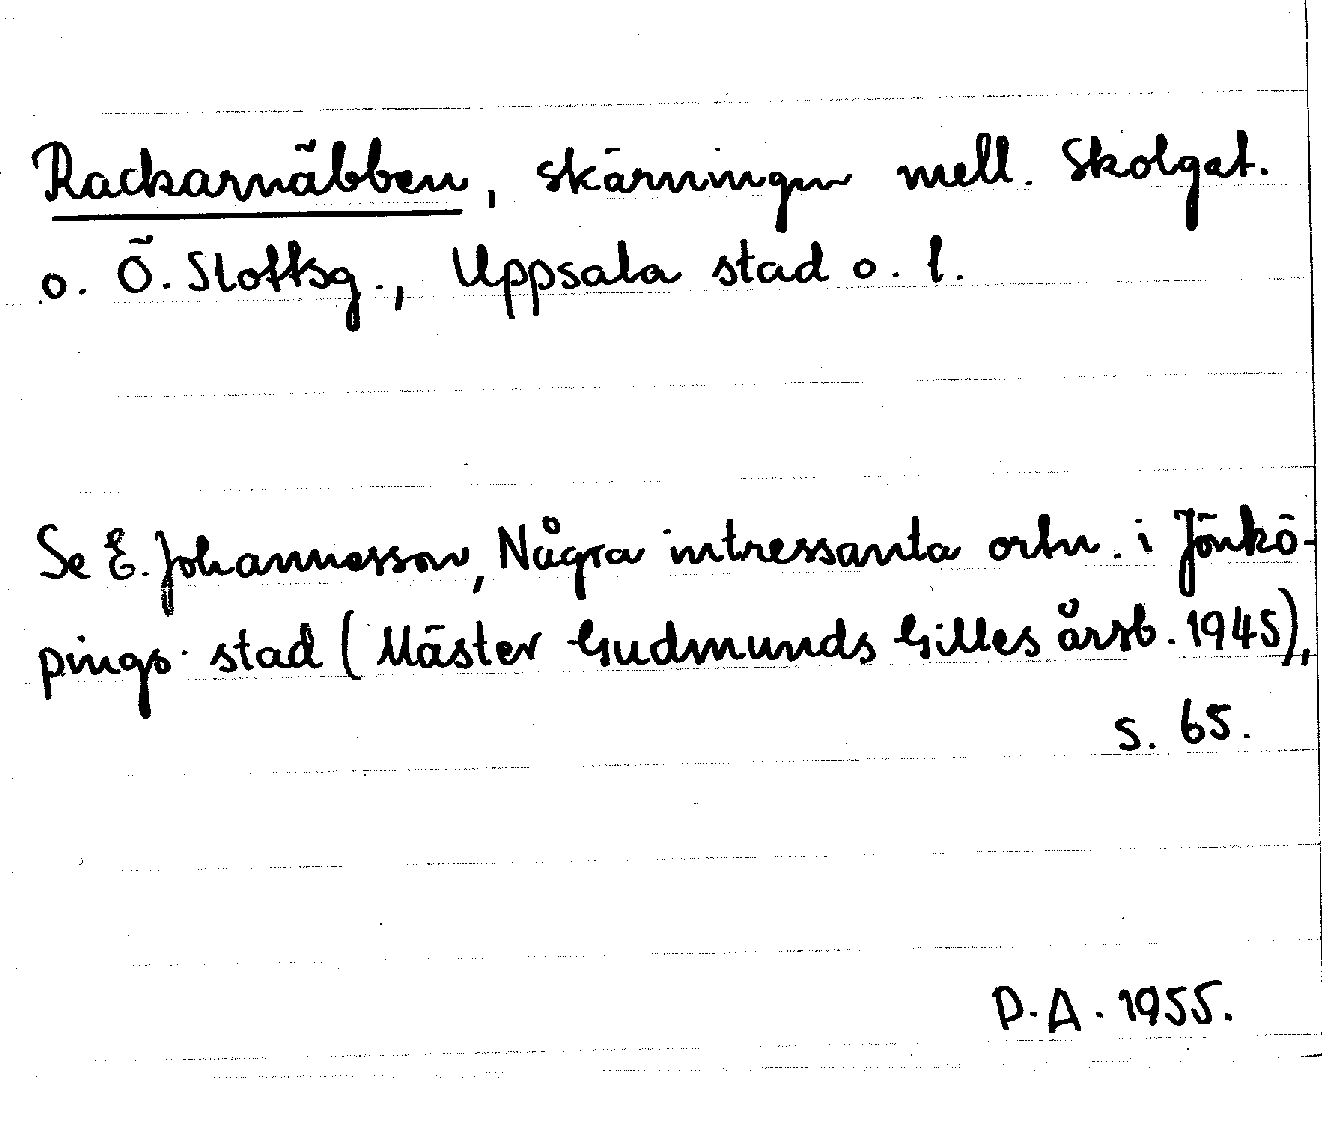 Rackarnäbben, skärningen mell. Skolgat.
o. Ö. Slottsg., Uppsala stad o. l.
Se E. Johannesson, Några intressanta ortn. i Jönkö-
pings stad (Mäster Gudmunds Gilles årsb. 1945),
s. 65.
D.A. 1955.